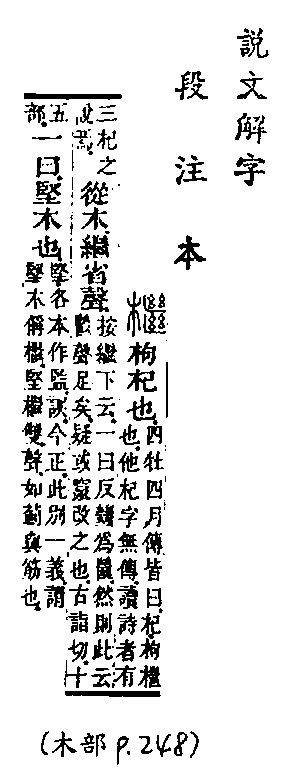 說文解字
段注本
檵 枸杞也。四牡四月傳皆曰。杞。枸檵
也。他杞字無傳。讀詩者有
三杞之
說焉。從木。繼省聲。按繼下云。一曰反𢇍為㡭。然則此云
㡭聲足矣。疑或竄改之也。古詣切。十
五
部。一曰。堅木也。堅各本作監。誤。今正。此別一義。謂
堅木偁檵。堅檵雙聲。如薊與筋也。
(木部 p.248)